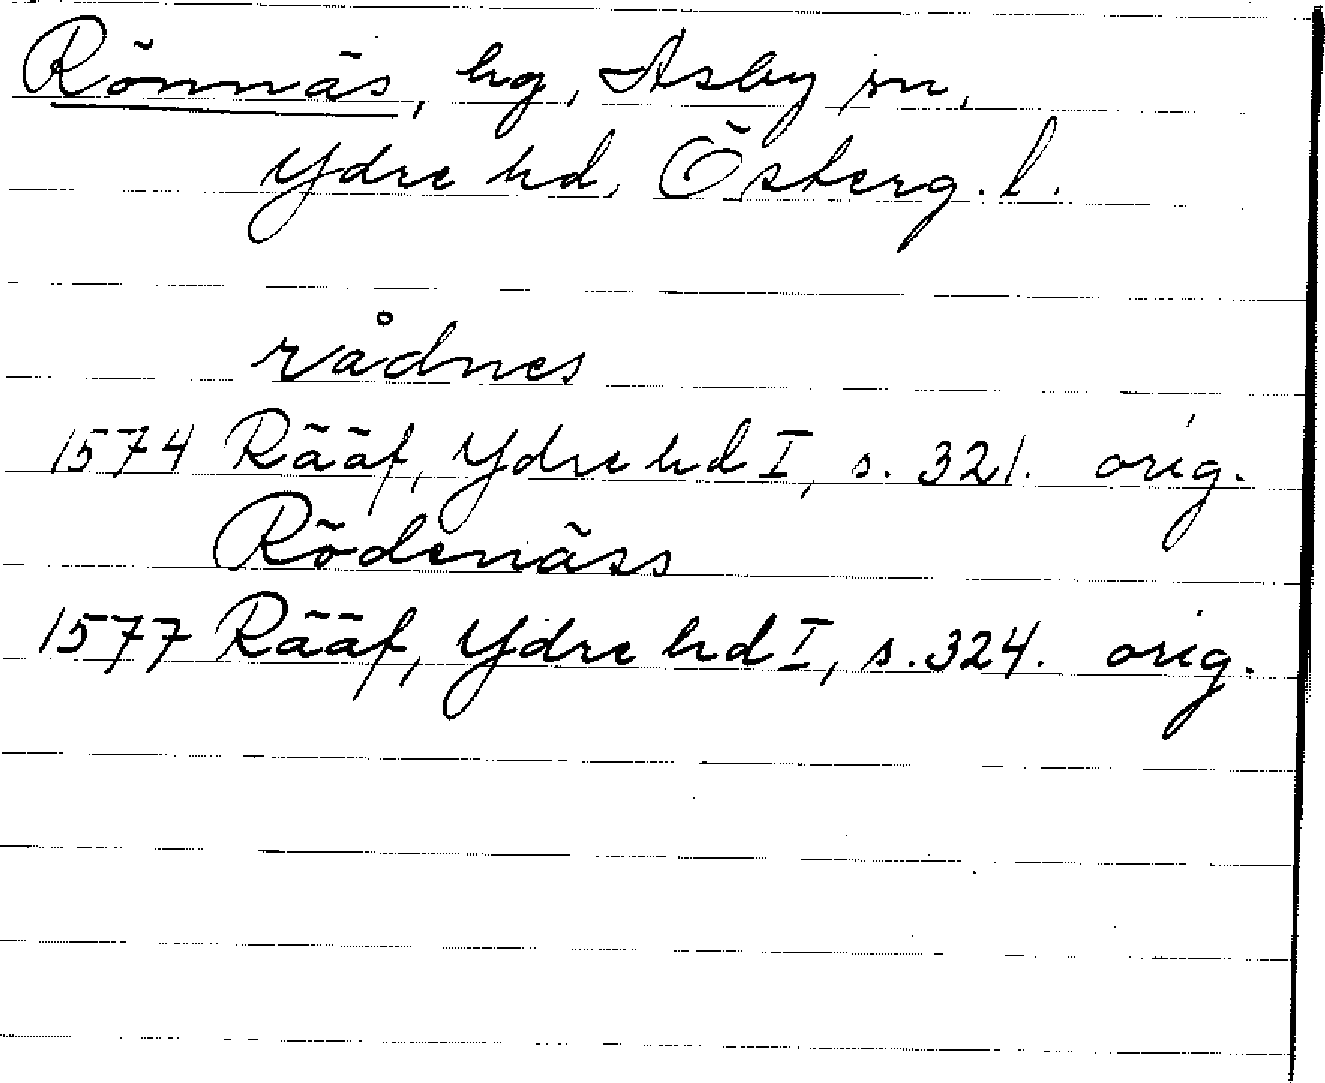 Rönnäs, hg, Asby sn,
Ydre hd, Österg. l.
rådnes
1574 Rääf, Ydre hd I, s. 321. orig.
Rödenäss
1577 Rääf, Ydre hd I, s. 324. orig.